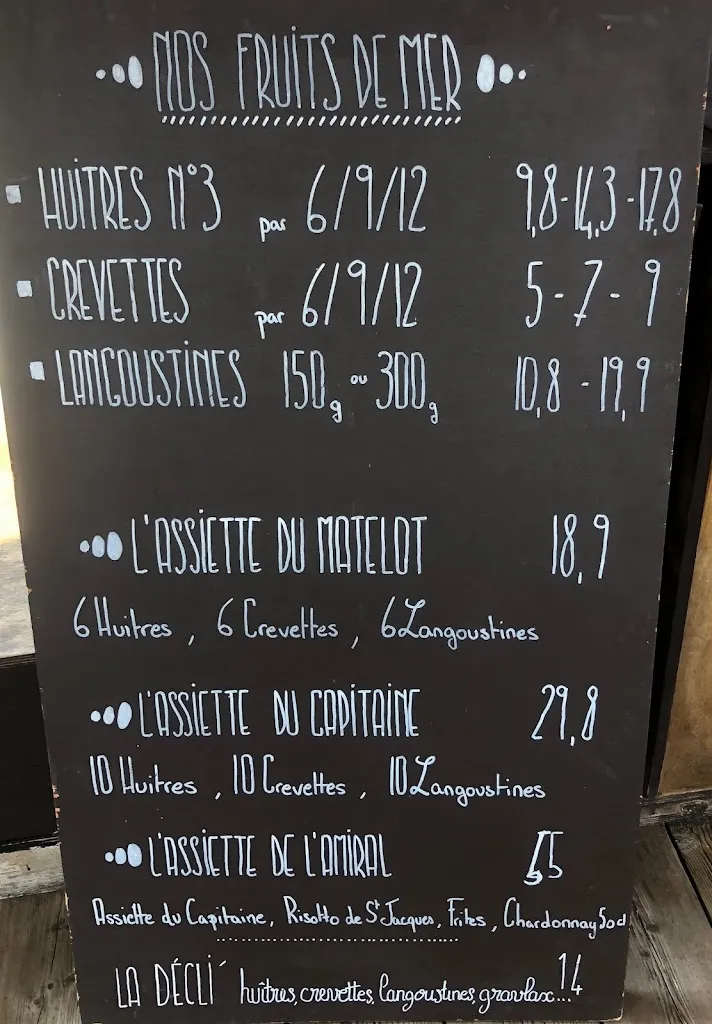 NOS FRUITS DE MER
HUITRES N°3 par 6/9/12 9,8-14,3-17,8
CREVETTES par 6/9/12 5-7-9
LANGOUSTINES 150g ou 300g 10,8-19,9
L'ASSIETTE DU MATELOT 18,9
6 Huitres, 6 Crevettes, 6 Langoustines
L'ASSIETTE DU CAPITAINE 29,8
10 Huitres, 10 Crevettes, 10 Langoustines
L'ASSIETTE DE L'AMIRAL
Assiette du Capitaine, Risotto de St Jacques, Frites, Chardonnay 50cl
LA DÉCLI' huîtres, crevettes, langoustines, gravlax... 14